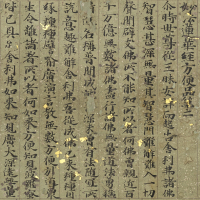 妙法蓮華經方便品第二
尒時世尊從三昧安詳而起告舍利弗諸佛
智慧甚深無量其智慧門難解難入一切
聲聞辟支佛所不能知所以者何佛曾親近百
千万億無數諸佛盡行諸佛無量道法勇
猛精進名稱普聞成就甚深未曾有法隨宜所
說意趣難解舍利弗吾從成佛已來種種因
緣種種譬喻廣演言教無數方便引導衆
生令離諸著所以者何如來方便知見波羅蜜
皆已具足舍利弗如來知見廣大深遠無量